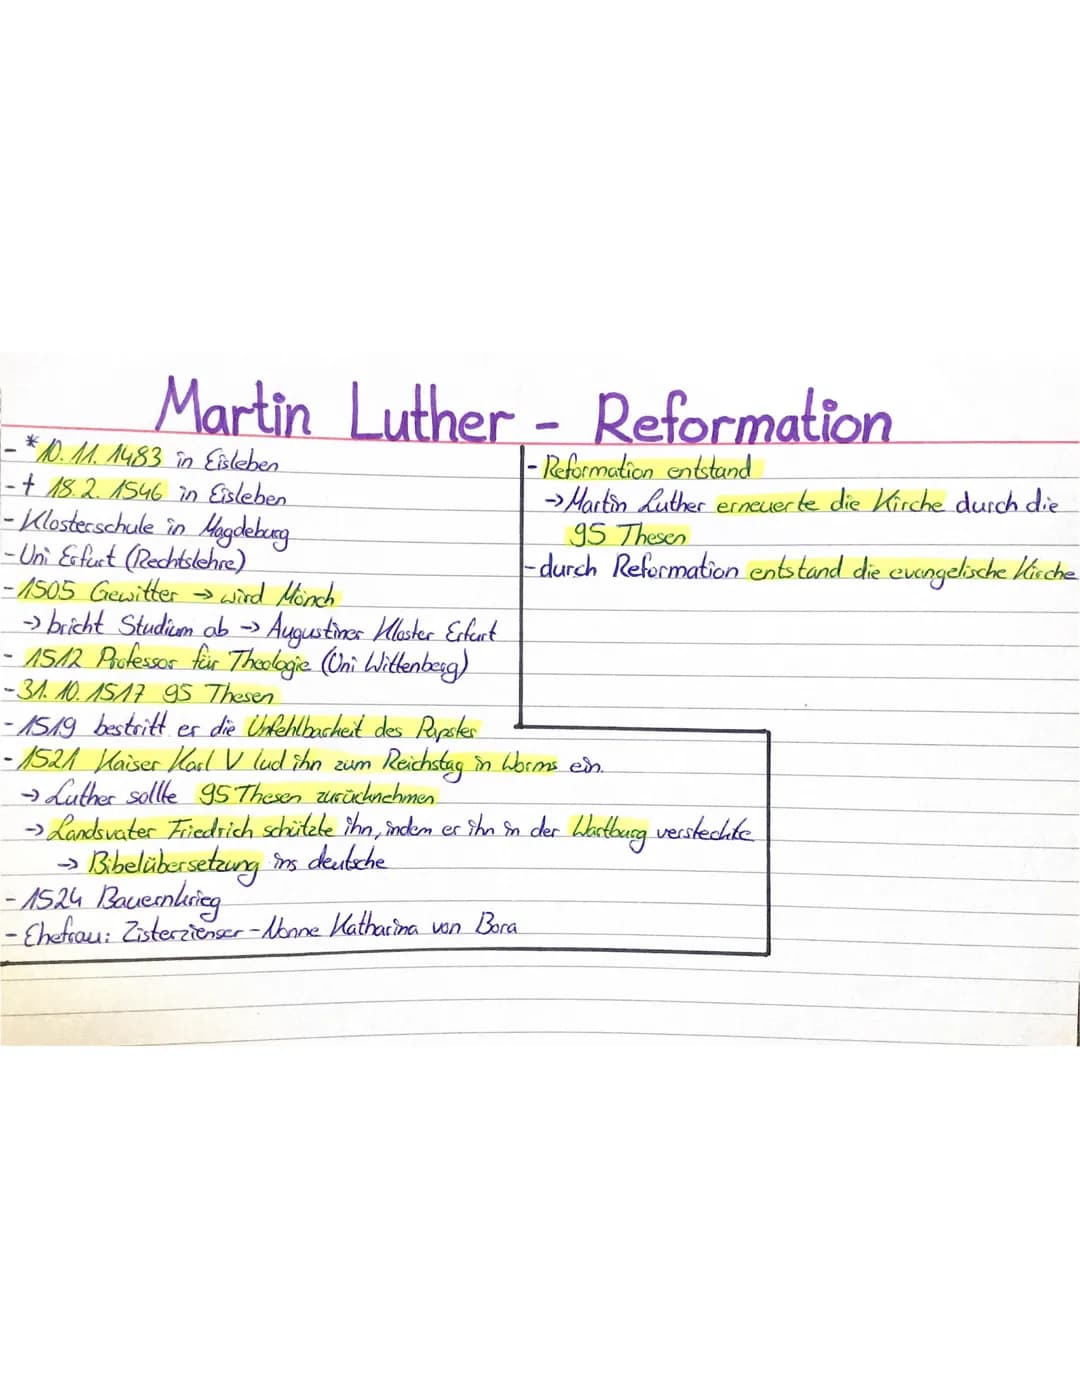 Martin Luther - Reformation
- * 10. 11. 1483 in Eisleben
- † 18. 2. 1546 in Eisleben
- Klosterschule in Magdeburg
- Uni Erfurt (Rechtslehre)
- 1505 Gewitter → wird Mönch
→ bricht Studium ab → Augustiner Kloster Erfurt
- 1512 Professor für Theologie (Uni Wittenberg)
- 31. 10. 1517 95 Thesen
- 1519 bestritt er die Unfehlbarkeit des Papstes
- 1521 Kaiser Karl V lud ihn zum Reichstag in Worms ein.
→ Luther sollte 95 Thesen zurücknehmen
→ Landsvater Friedrich schützte ihn, indem er ihn in der Wartburg versteckte
→ Bibelübersetzung ins deutsche
- 1524 Bauernkrieg
- Ehefrau: Zisterzienser-Nonne Katharina von Bora
- Reformation entstand
→ Martin Luther erneuerte die Kirche durch die
95 Thesen
- durch Reformation entstand die evangelische Kirche